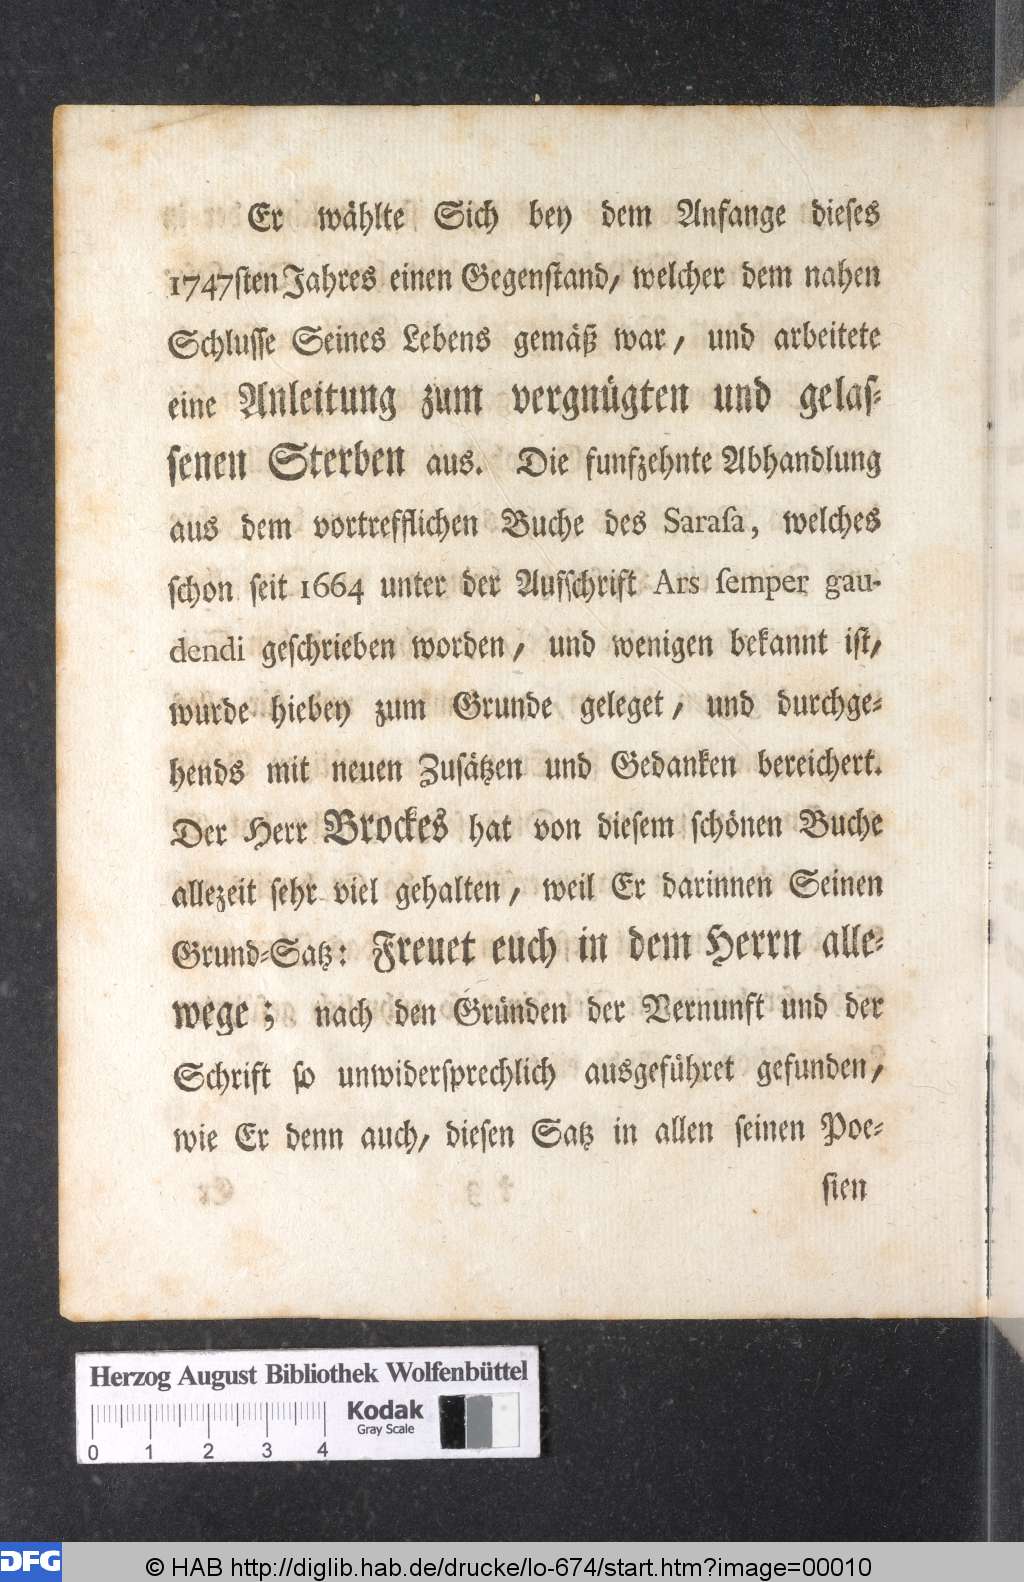 Er wählte Sich bey dem Anfange dieses
1747sten Jahres einen Gegenstand, welcher dem nahen
Schlusse Seines Lebens gemäß war, und arbeitete
eine Anleitung zum vergnügten und gelas-
senen Sterben aus. Die funfzehnte Abhandlung
aus dem vortrefflichen Buche des Saraſa, welches
schon seit 1664 unter der Aufschrift Ars ſemper gau-
dendi geschrieben worden, und wenigen bekannt ist,
wurde hiebey zum Grunde geleget, und durchge-
hends mit neuen Zusätzen und Gedanken bereichert.
Der Herr Brockes hat von diesem schönen Buche
allezeit sehr viel gehalten, weil Er darinnen Seinen
Grund-Satz: Freuet euch in dem Herrn alle-
wege; nach den Gründen der Vernunft und der
Schrift so unwidersprechlich ausgeführet gefunden,
wie Er denn auch, diesen Satz in allen seinen Poe-
sien
Herzog August Bibliothek Wolfenbüttel
Kodak
Gray Scale
0 1 2 3 4
DFG
© HAB http://diglib.hab.de/drucke/lo-674/start.htm?image=00010